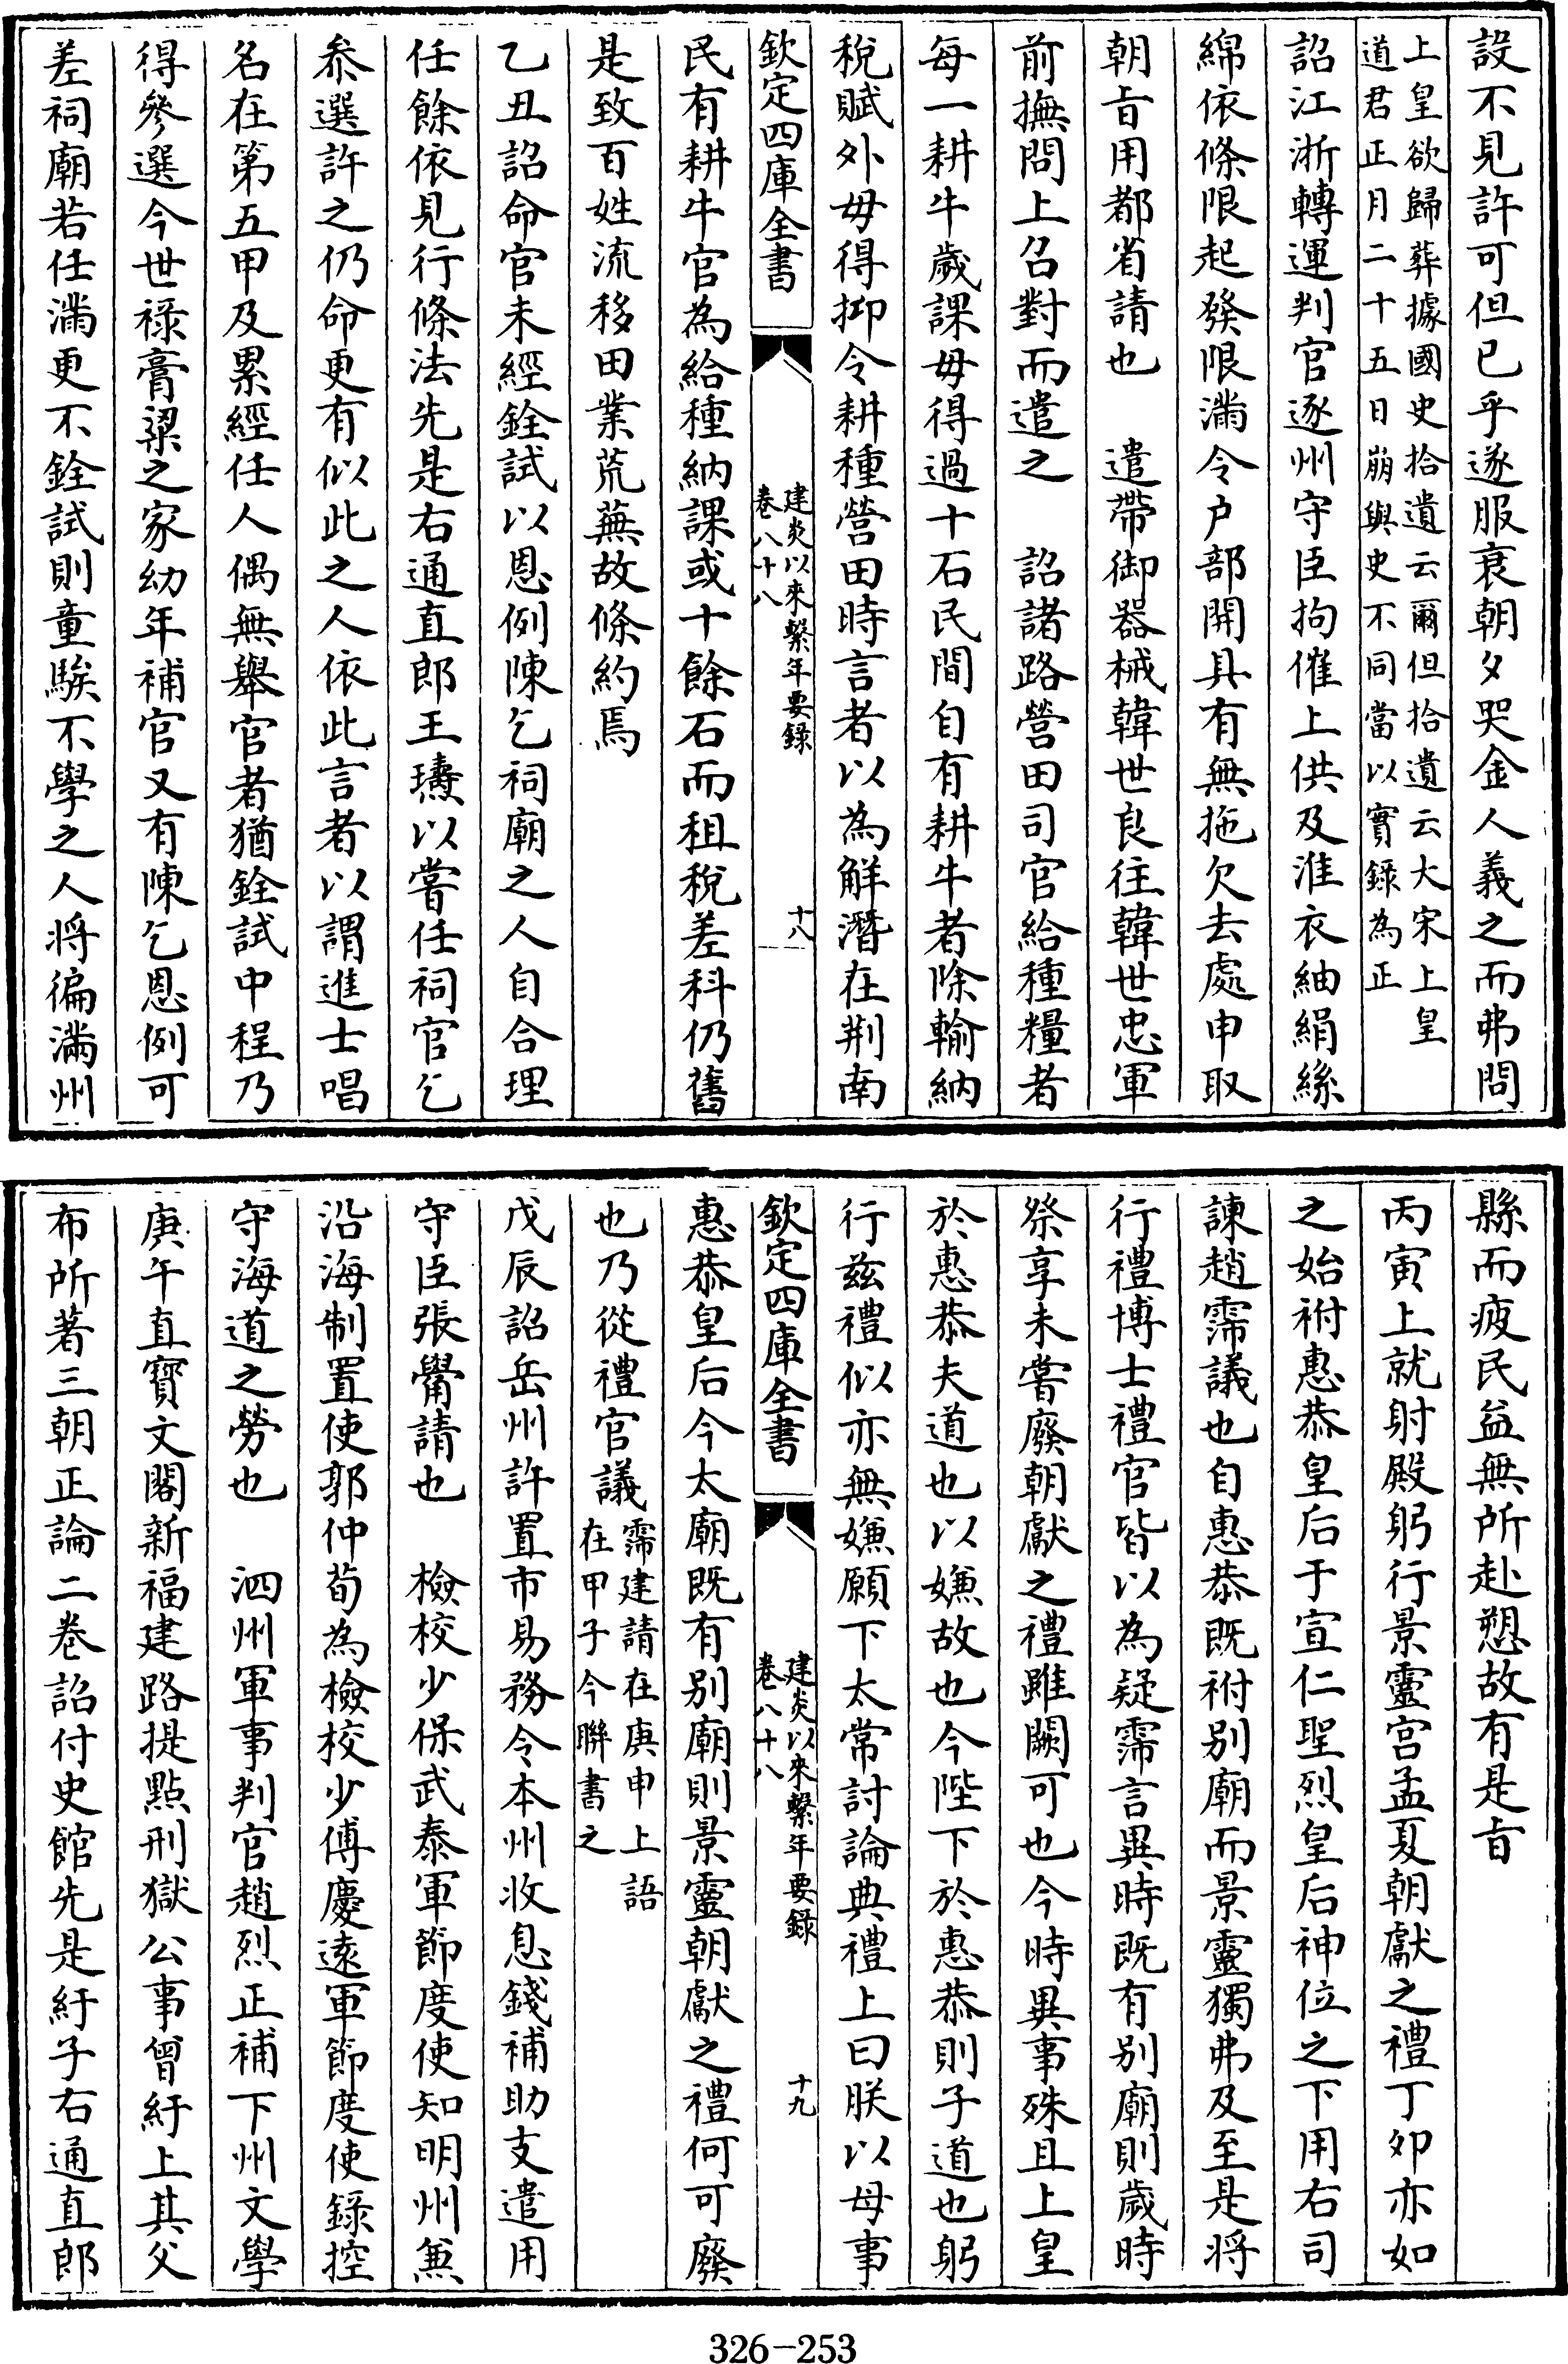 設不見許可但已乎遂服衰朝夕哭金人義之而弗問
上皇欲歸葬據國史拾遺云爾但拾遺云大宋上皇
道君正月二十五日崩與史不同當以實錄為正
詔江浙轉運判官逐州守臣拘催上供及淮衣紬絹絲
綿依條限起發限滿令户部開具有無拖欠去處申取
朝㫖用都省請也　遣帶御器械韓世良往韓世忠軍
前撫問上召對而遣之　詔諸路營田司官給種糧者
每一耕牛歲課毋得過十石民間自有耕牛者除輸納
稅賦外毋得抑令耕種營田時言者以為解潛在荆南
欽定四庫全書
建炎以來繫年要錄
卷八十八
十八
民有耕牛官為給種納課或十餘石而租稅差科仍舊
是致百姓流移田業荒蕪故條約焉
乙丑詔命官未經銓試以恩例陳乞祠廟之人自合理
任餘依見行條法先是右通直郎王㻫以嘗任祠官乞
叅選許之仍命更有似此之人依此言者以謂進士唱
名在第五甲及累經任人偶無舉官者猶銓試中程乃
得參選今世祿膏粱之家幼年補官又有陳乞恩例可
差祠廟若任滿更不銓試則童騃不學之人將徧滿州
縣而疲民益無所赴愬故有是㫖
丙寅上就射殿躬行景靈宫孟夏朝獻之禮丁夘亦如
之始祔惠恭皇后于宣仁聖烈皇后神位之下用右司
諫趙霈議也自惠恭既祔别廟而景靈獨弗及至是將
行禮博士禮官皆以為疑霈言異時既有别廟則歲時
祭享未嘗廢朝獻之禮雖闕可也今時異事殊且上皇
於惠恭夫道也以嫌故也今陛下於惠恭則子道也躬
行兹禮似亦無嫌願下太常討論典禮上曰朕以母事
欽定四庫全書
建炎以來繫年要錄
卷八十八
十九
惠恭皇后今太廟既有别廟則景靈朝獻之禮何可廢
也乃從禮官議
霈建請在庚申上語
在甲子今聯書之
戊辰詔岳州許置市易務令本州收息錢補助支遣用
守臣張觷請也　檢校少保武泰軍節度使知明州兼
沿海制置使郭仲荀為檢校少傅慶遠軍節度使錄控
守海道之勞也　泗州軍事判官趙烈正補下州文學
庚午直寶文閣新福建路提點刑獄公事曾紆上其父
布所著三朝正論二卷詔付史館先是紆子右通直郎
326-253